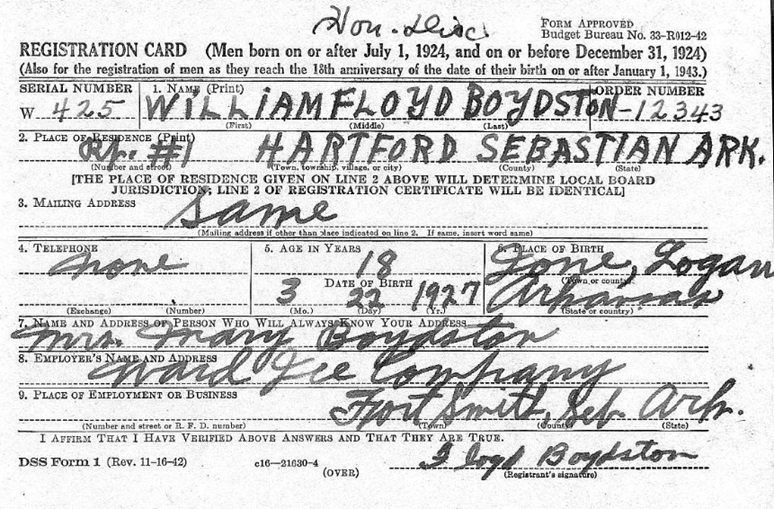 Hon. Disc
FORM APPROVED
Budget Bureau No. 33-R012-42
REGISTRATION CARD (Men born on or after July 1, 1924, and on or before December 31, 1924)
(Also for the registration of men as they reach the 18th anniversary of the date of their birth on or after January 1, 1943.)
SERIAL NUMBER 1. NAME (Print) ORDER NUMBER
W 425 WILLIAM FLOYD BOYDSTON -12343
(First) (Middle) (Last)
2. PLACE OF RESIDENCE (Print)
#1 HARTFORD SEBASTIAN ARK.
(Number and street) (Town, township, village, or city) (County) (State)
[THE PLACE OF RESIDENCE GIVEN ON LINE 2 ABOVE WILL DETERMINE LOCAL BOARD
JURISDICTION; LINE 2 OF REGISTRATION CERTIFICATE WILL BE IDENTICAL]
3. MAILING ADDRESS
Same
(Mailing address if other than place indicated on line 2. If same, insert word same)
4. TELEPHONE 5. AGE IN YEARS 6. PLACE OF BIRTH
None 18 Ione, Logan
DATE OF BIRTH (Town or county)
3 22 1927 Arkansas
(Exchange) (Number) (Mo.) (Day) (Yr.) (State or country)
7. NAME AND ADDRESS OF PERSON WHO WILL ALWAYS KNOW YOUR ADDRESS
Mrs. Mary Boydston
8. EMPLOYER'S NAME AND ADDRESS
Ward Ice Company
9. PLACE OF EMPLOYMENT OR BUSINESS
Fort Smith, Seb. Ark.
(Number and street or R. F. D. number) (Town) (County) (State)
I AFFIRM THAT I HAVE VERIFIED ABOVE ANSWERS AND THAT THEY ARE TRUE.
DSS Form 1 (Rev. 11-16-42) c16-21630-4 Floyd Boydston
(OVER) (Registrant's signature)